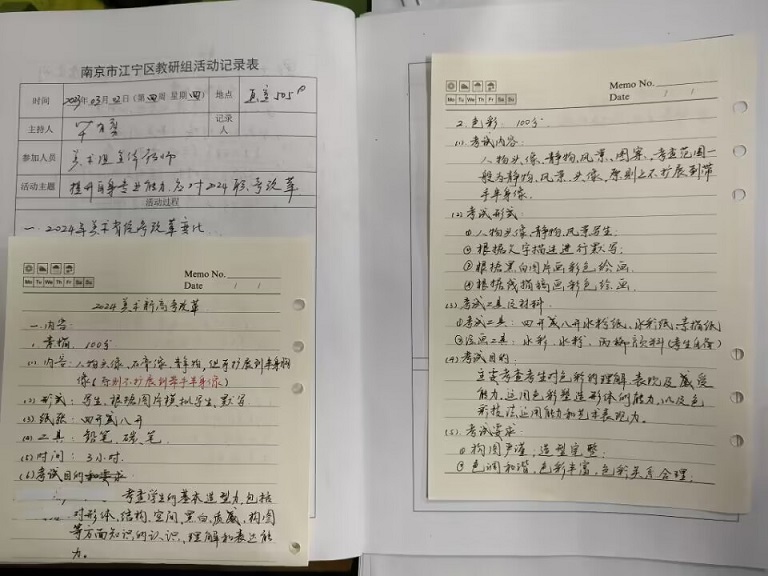 南京市江宁区教研组活动记录表
时间 2023年03月02日（第四周 星期四） 地点 505
主持人 记录人
参加人员 美术组全体教师
活动主题 提升自身专业能力,应对2024新高考改革
活动过程
一.2024年美术省统考改革变化
Memo No.
Date / /
Mo Tu We Th Fr Sa Su
2024美术新高考改革
一.内容:
1.素描 100分
(1)内容:人物头像、石膏像、静物,但可扩展到半身胸
像(原则不扩展到带手半身像)
(2)形式:写生、根据图片模拟写生、默写
(3)纸张:四开或八开
(4)工具:铅笔、碳笔
(5)时间:3小时.
(6)考试目的和要求
考查学生的基本造型力,包括
对形体、结构、空间、黑白、质感、构图
等方面知识的认识,理解和表达能
力。
Memo No.
Date / /
Mo Tu We Th Fr Sa Su
2.色彩 100分
(1)考试内容:
人物头像、静物、风景、图案,考查范围一
般为静物、风景、头像,原则上不扩展到带
手半身像.
(2)考试形式:
①人物头像、静物、风景写生;
②根据文字描述进行默写;
③根据黑白图片画彩色绘画.
④根据线描稿画彩色绘画.
(3)考试工具及材料
①考试工具:四开或八开水粉纸、水彩纸、素描纸
②绘画工具:水彩、水粉、丙烯颜料(考生自备)
(4)考试目的:
主要考查考生对色彩的理解、表现及感受
能力,运用色彩塑造形体的能力,以及色
彩技法运用能力和艺术表现力。
(5)考试要求:
①构图严谨,造型完整;
②色调和谐,色彩丰富,色彩关系合理;